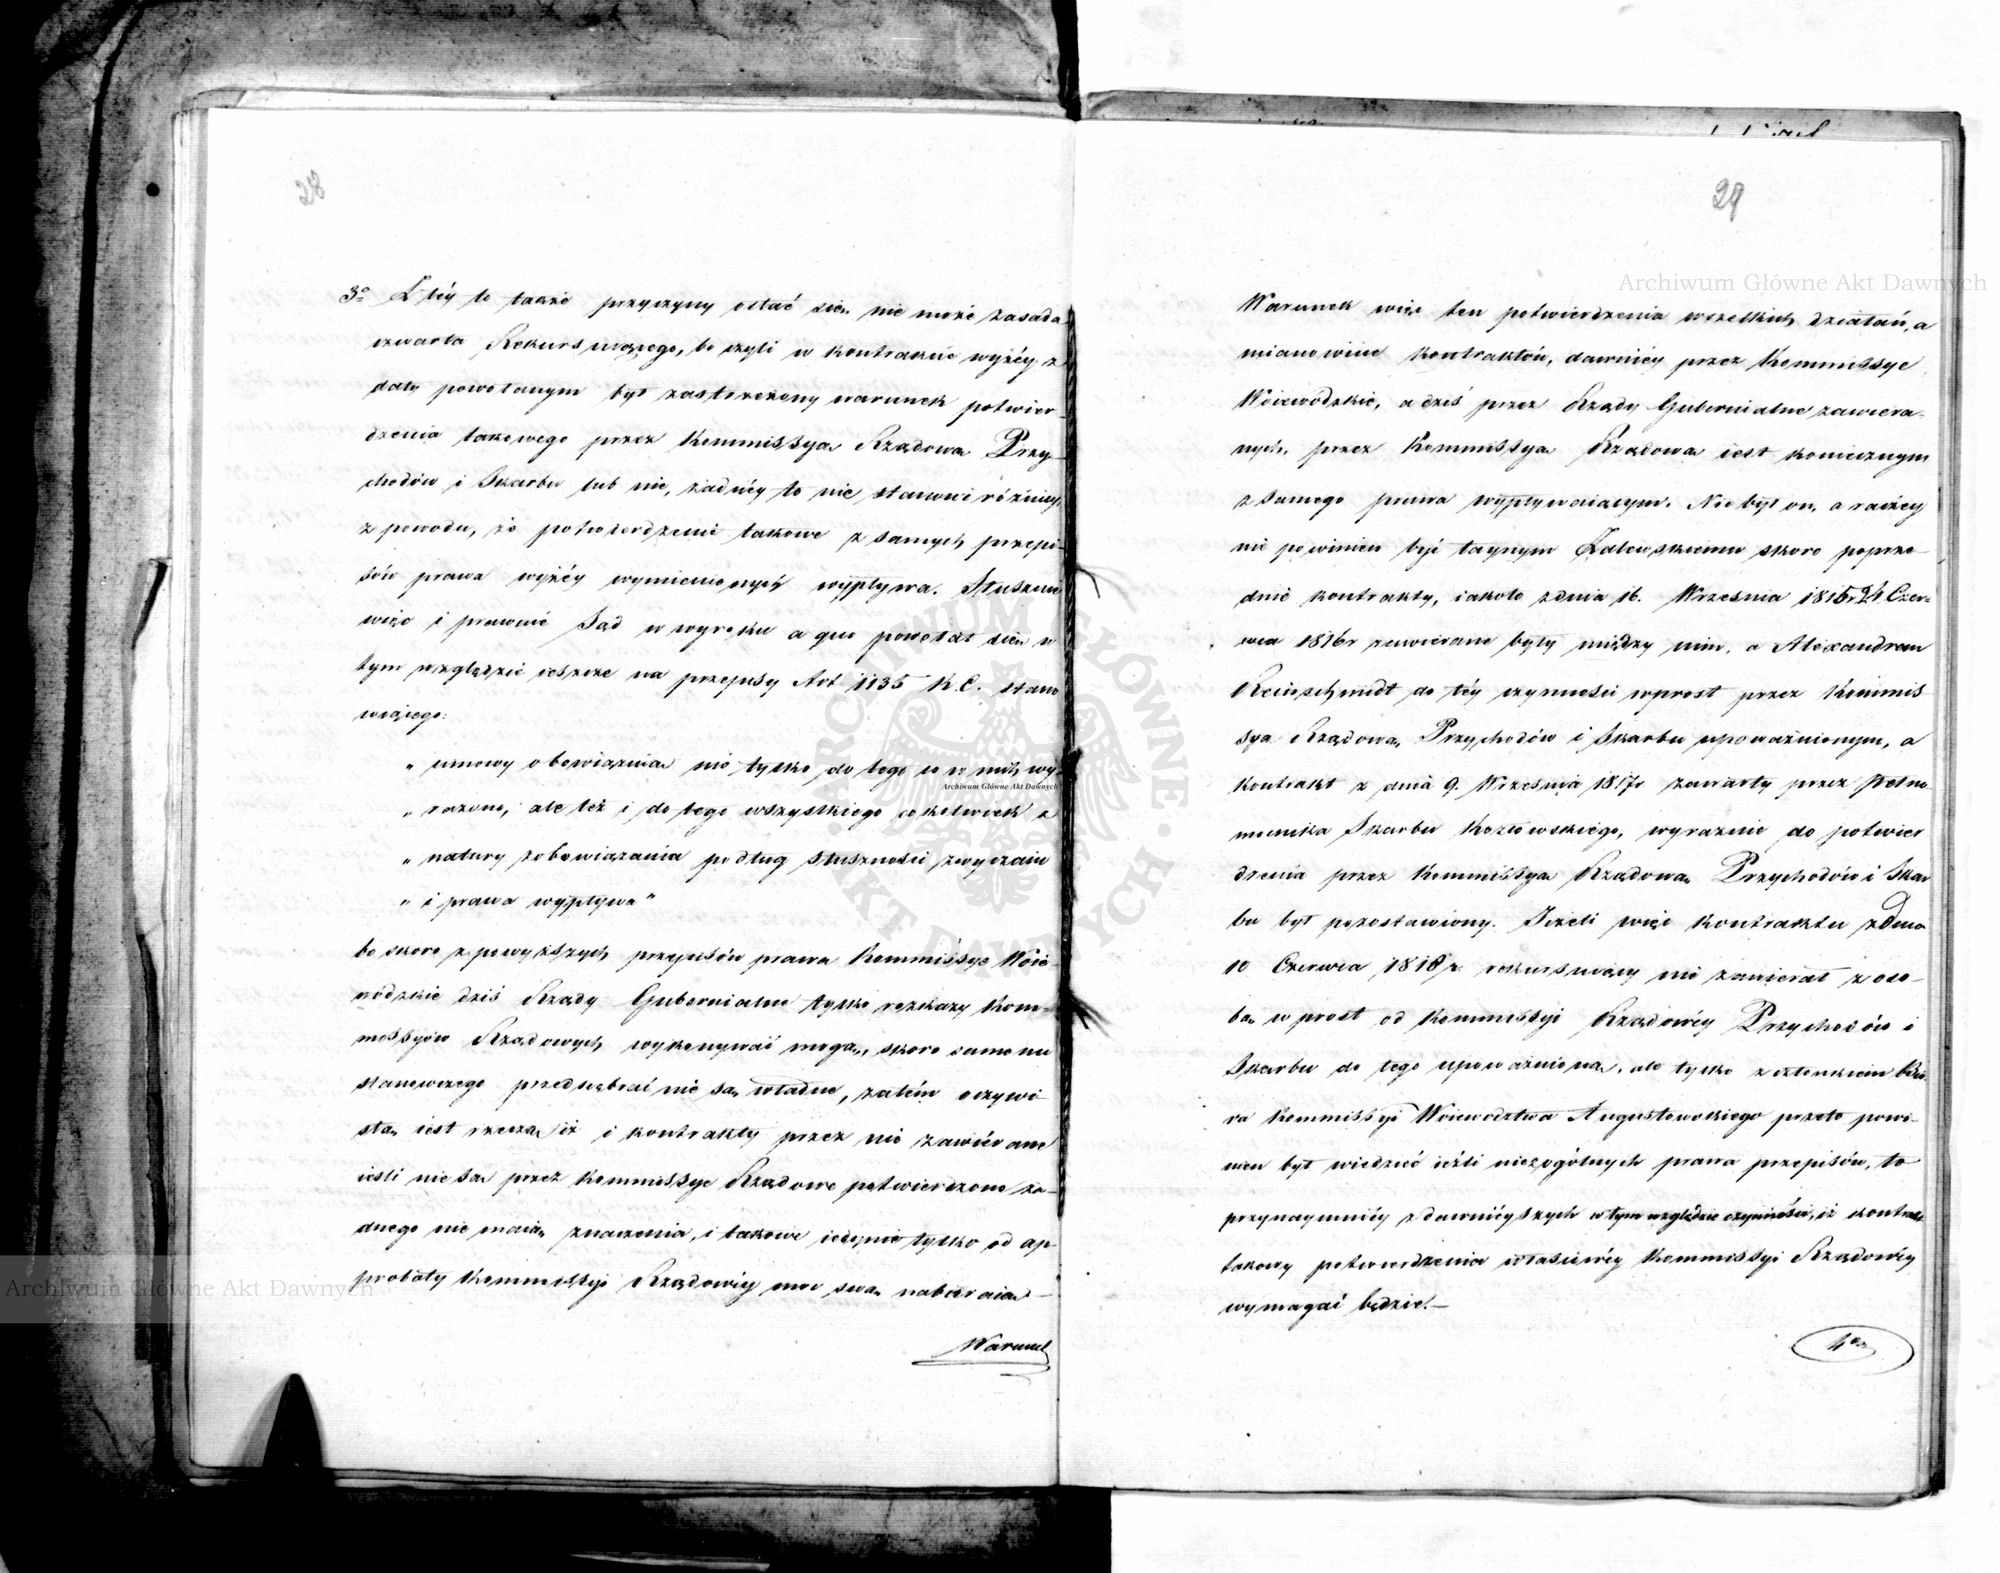 28
3o Z téy to także przyczyny ostać się nie może zasada
czwarta Rekursuiącego, bo czyli w kontrakcie wyżéy z
daty powołanym był zastrzeżony warunek potwier-
dzenia takowego przez Kommissyą Rządową Przy-
chodów i Skarbu lub nie, żadnéy to nie stanowi różnicy,
z powodu, że potwierdzenie takowe z samych przepi-
sów prawa wyżéy wymienionych wypływa. Słusznie
więc i prawnie Sąd w wyroku a quo powołał się w
tym względzie ieszcze na przepisy Art 1135 K.C. stano
wiącego:
„ umowy obowiązuią nie tylko do tego co w nich wy-
„ rażono, ale też i do tego wszystkiego cokolwiek z
„ natury zobowiązania podług słuszności zwyczaiu
„ i prawa wypływa"
bo skoro z powyższych przepisów prawa Kommissye Woie-
wódzkie dziś Rządy Gubernialne tylko rozkazy Kom-
missyów Rządowych wykonywać mogą, skoro same nic
stanowczego przedsiębrać nie są władne, zatém oczywi-
stą iest rzeczą iż i kontrakty przez nie zawiérane
ieśli nie są przez Kommissye Rządowe potwierdzone ża-
dnego nie maią znaczenia, i takowe iedynie tylko od ap-
probaty Kommissyi Rządowéy moc swą nabieraią.—
Warunek
29
Warunek więc ten potwierdzenia wszelkich działań, a
mianowicie kontraktów, dawniéy przez Kommissye
Woiewódzkie, a dziś przez Rządy Gubernialne zawiera-
nych, przez Kommissyą Rządową iest koniecznym
z samego prawa wypływaiącym. Nie był on, a raczéy
nie powinien być taynym Zalewskiemu skoro poprze-
dnie kontrakty, iakoto z dnia 16. Września 1815 r 24 Czer-
wca 1816 r zawierane były między nim, a Alexandrem
Kleinschmidt do téy czynności wprost przez Kommis
syą Rządową Przychodów i Skarbu upoważnionym, a
kontrakt z dnia 9. Września 1817 r zawarty przez Pełno-
mocnika Skarbu Kozłowskiego, wyraźnie do potwier
dzenia przez Kommissyą Rządową Przychodów i Skar
bu był pozostawiony. Jeżeli więc kontraktu z dnia
10 Czerwca 1818 r. rekursuiący nie zawierał z oso-
bą wprost od Kommissyi Rządowéy Przychodów i
Skarbu do tego upoważnioną, ale tylko z członkiem Biu-
ra Kommissyi Woiewództwa Augustowskiego przeto powi-
nien był wiedzieć ieźli nie z ogólnych prawa przepisów, to
przynaymniéy z dawniéyszych w tym względzie czynności, iż kontrakt
takowy potwierdzenia właściwéy Kommissyi Rządowéy
wymagać będzie.—
4o
Archiwum Główne Akt Dawnych
Archiwum Główne Akt Dawnych
Archiwum Główne Akt Dawnych
ARCHIWUM GŁÓWNE · AKT DAWNYCH ·